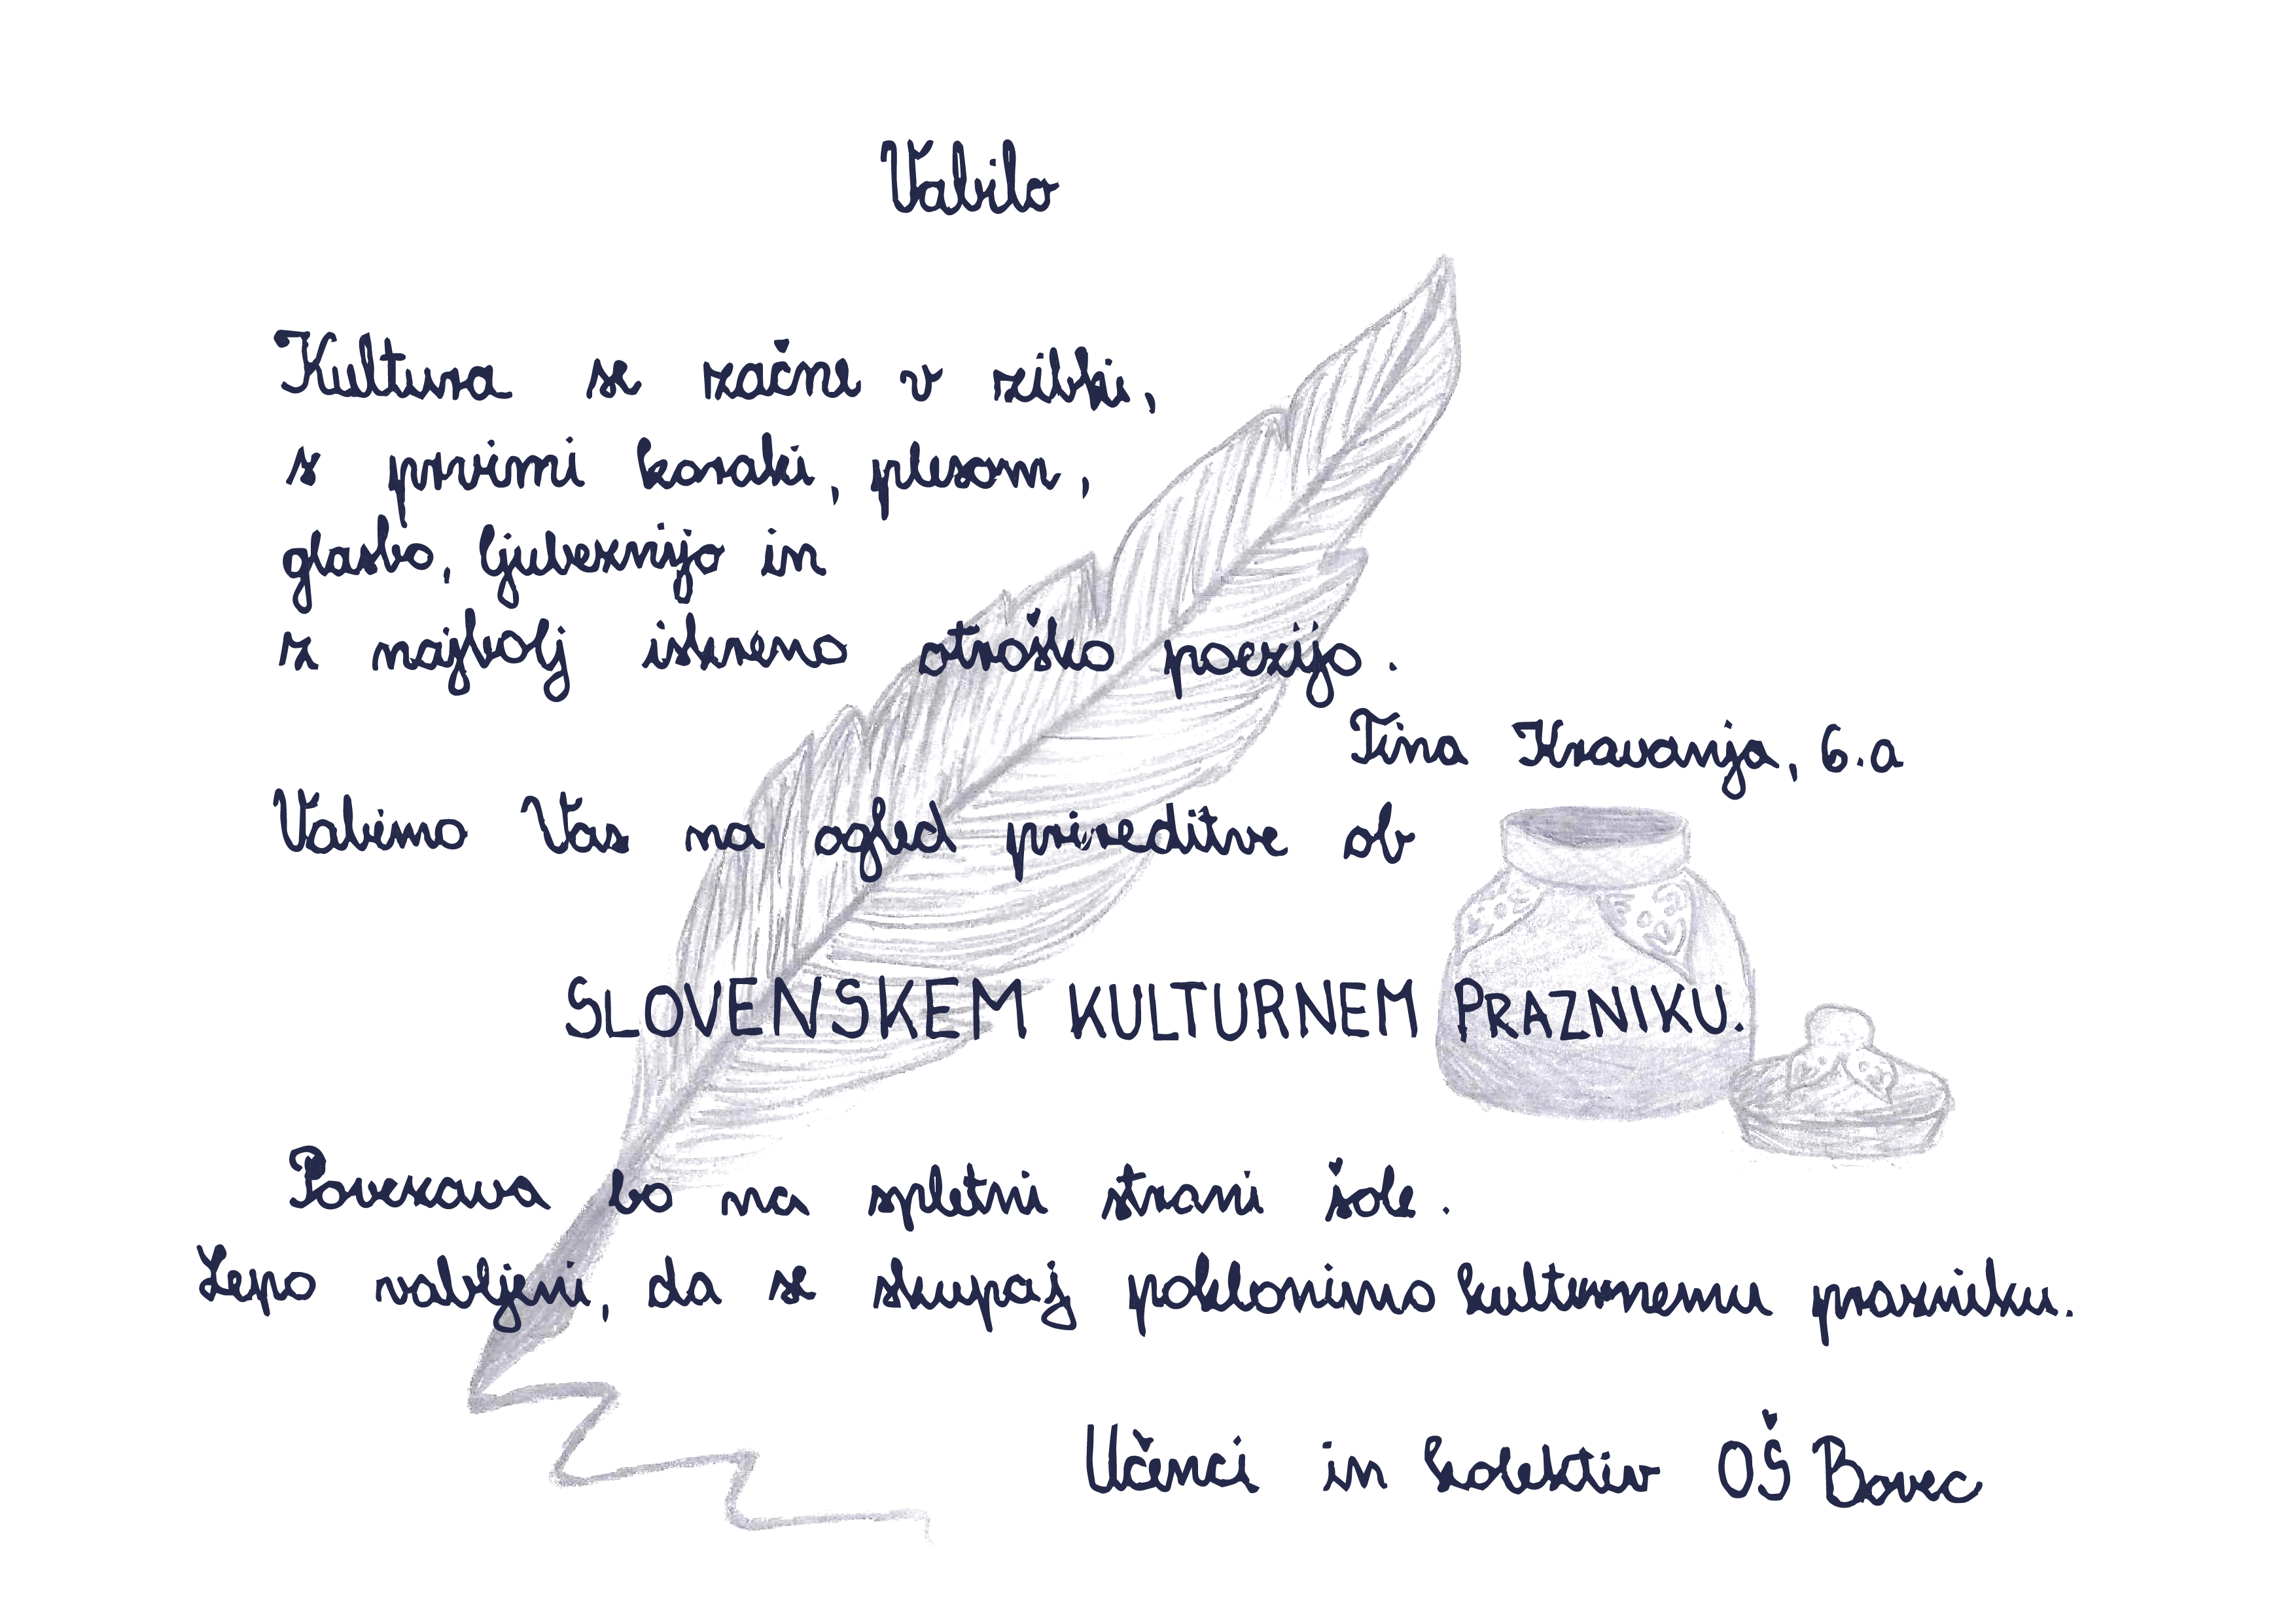 Vabilo
Kultura se začne v zibki,
s prvimi koraki, plesom,
glasbo, ljubeznijo in
z najbolj iskreno otroško poezijo.
Tina Kravanja, 6.a
Vabimo Vas na ogled prireditve ob
SLOVENSKEM KULTURNEM PRAZNIKU.
Povezava bo na spletni strani šole.
Lepo vabljeni, da se skupaj poklonimo kulturnemu prazniku.
Učenci in kolektiv OŠ Bovec